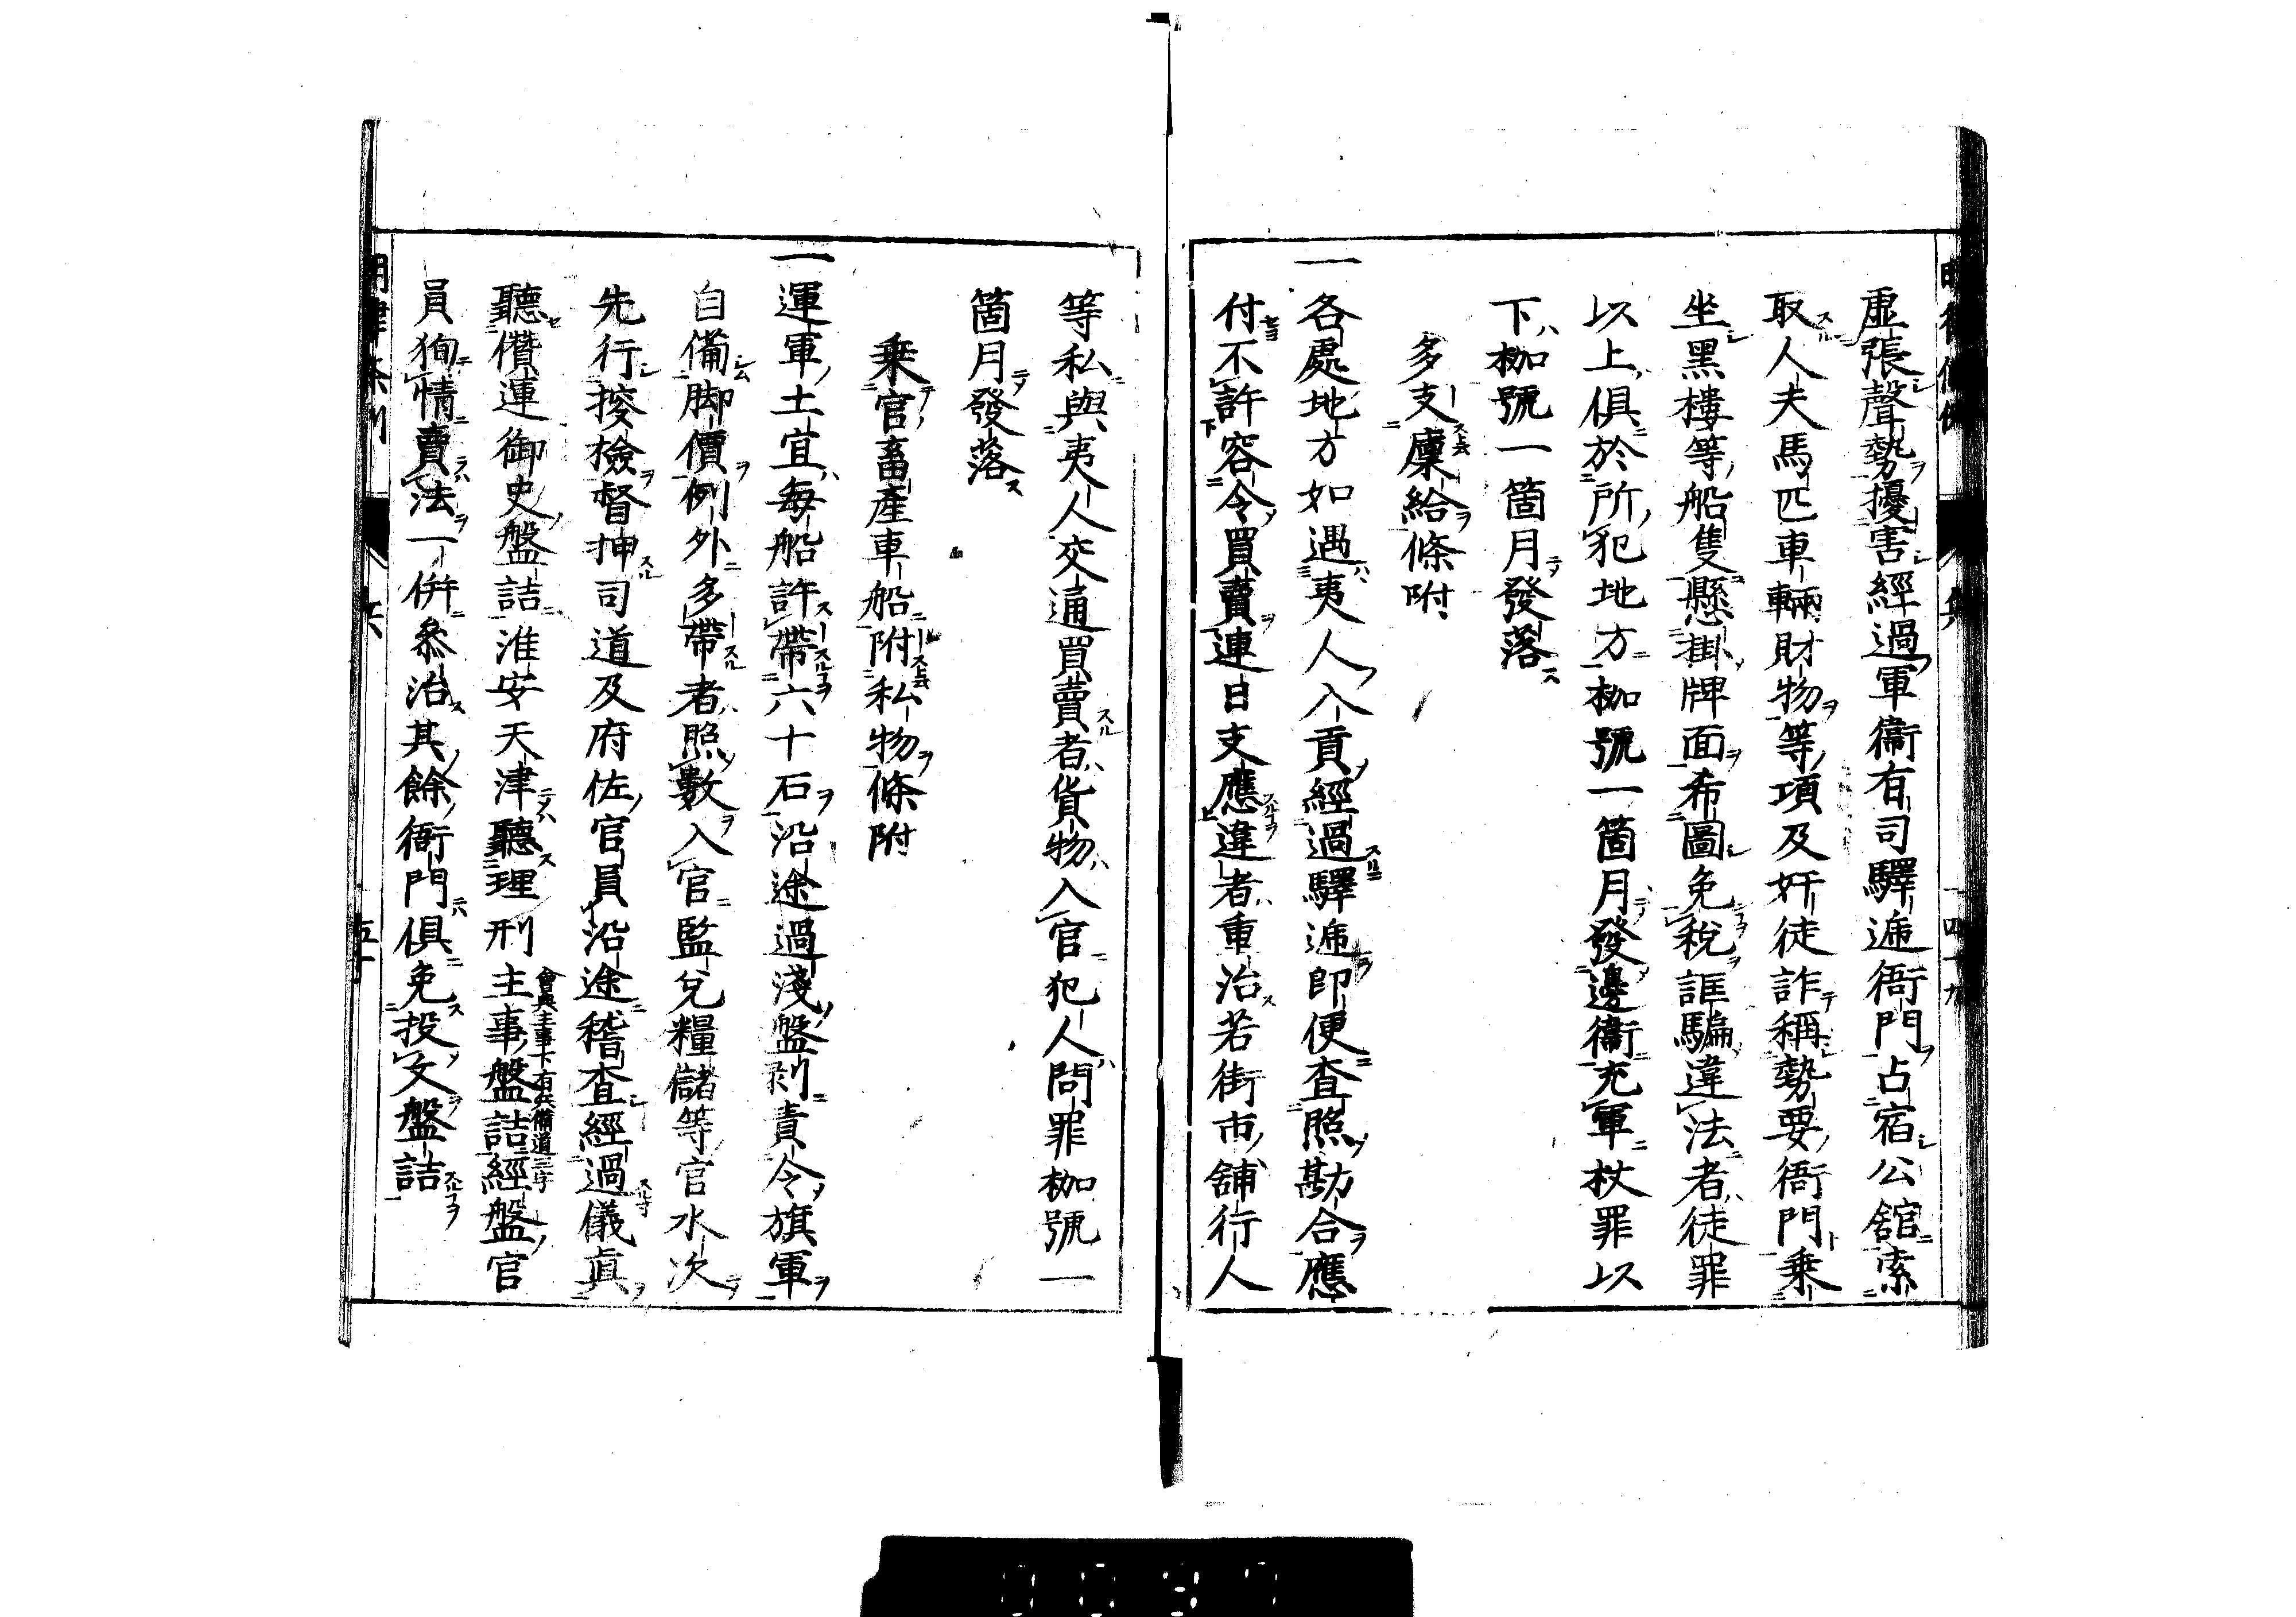 虛張聲勢擾害經過軍衞有司驛遞衙門占宿公舘索
取人夫馬匹車輛財物等項及奸徒詐稱勢要衙門乗
坐黑樓等船隻懸掛牌面希圖免稅誆騙違法者徒罪
以上俱於所犯地方枷號一箇月發邊衞充軍杖罪以
下枷號一箇月發落
多支廩給條附
一各處地方如遇夷人入貢經過驛遞即便查照勘合應
付不許容令買賣連日支應違者重治若街市舖行人
等私與夷人交通買賣者貨物入官犯人問罪枷號一
箇月發落
乗官畜產車船附私物條附
一運軍土宜每船許帶六十石沿途過淺盤剥責令旗軍
自備脚價例外多帶者照數入官監兌糧儲等官水次
先行搜檢督押司道及府佐官員沿途稽查經過儀眞
聽儹運御史盤詰淮安天津聽理刑主事盤詰經盤官
會典主事下有兵備道三字
員狥情賣法一併叅治其餘衙門俱免投文盤詰